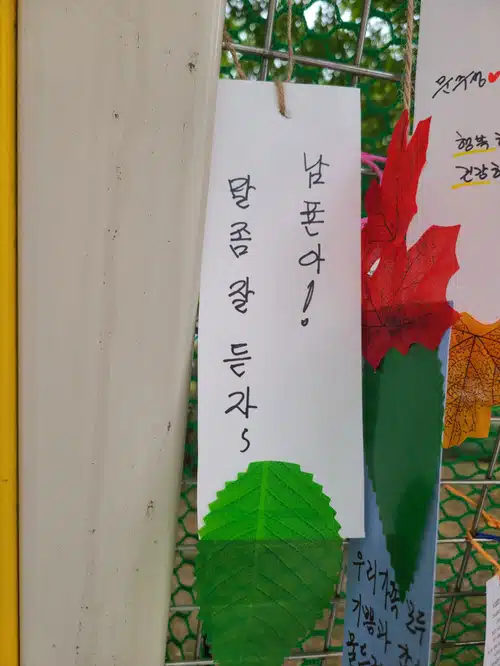 남푠아!
말 좀 잘 듣자~
행복
건강
우리가족 모두
기쁨과